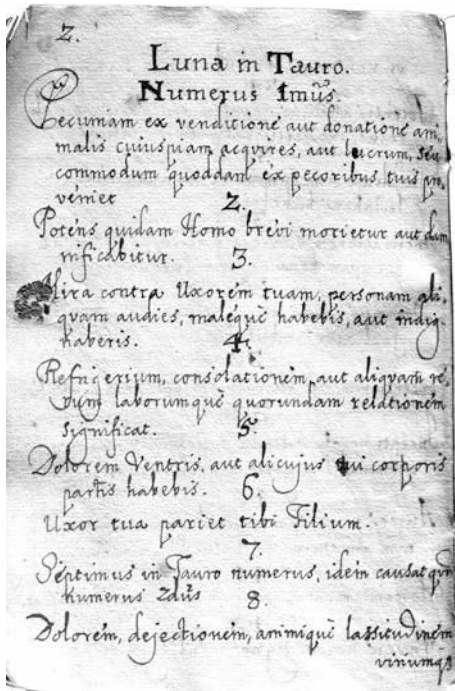 2.
Luna in Tauro.
Numerus 1mus.
Pecuniam ex venditione aut donatione ani,
malis cuiuspiam acqvires, aut lucrum, seu
commodum quoddam ex pecoribus tuis pro,
veniet
2.
Potens quidam Homo brevi morietur aut dam
nificabitur.
3.
Mira contra Uxorem tuam, personam ali,
qvam audies, maleqúe habebis, aut indig,
haberis.
4.
Refrigerium, consolationem, aut aliqvam re,
rum laborumqúe quorundam relationem
significat.
5.
Dolorem Ventris, aut alicujus tui corporis
partis habebis.
6.
Uxor tua pariet tibi Filium.
7.
Septimus in Tauro numerus, idem causat qvd
numerus 2dus
8.
Dolorem, dejectionem, animiqúe lassitudinem
viriumqs